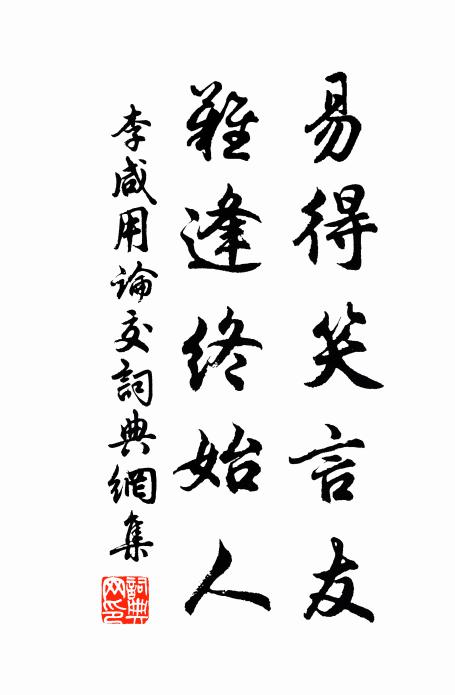 易得笑言友
難逢終始人
李咸用論交詞典網集
詞典网印